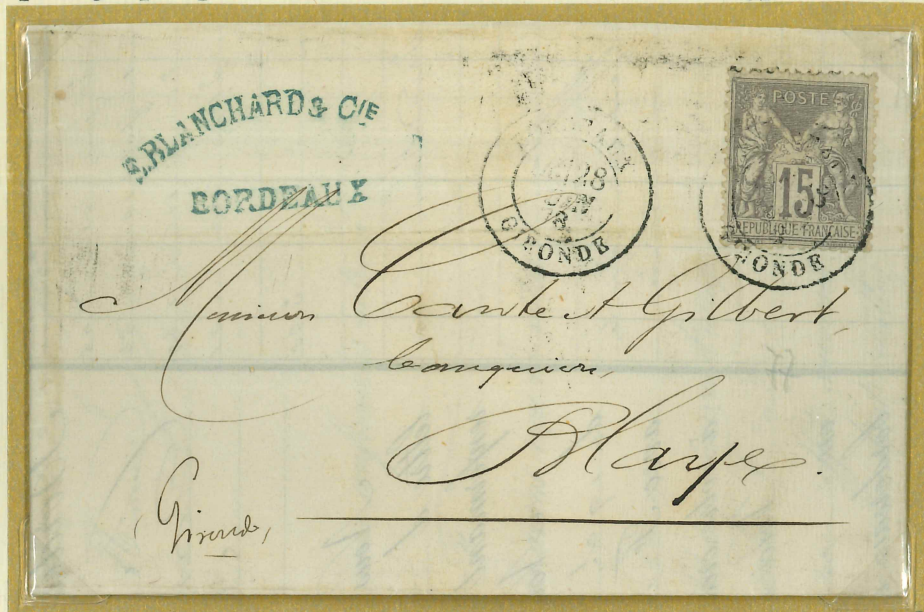 E. BLANCHARD & CIE
BORDEAUX
BORDEAUX
28
JUIN
GIRONDE
POSTE
15
REPUBLIQUE FRANCAISE
GIRONDE
Messieurs Cante et Gilbert,
banquiers,
Blaye.
(Gironde)
57